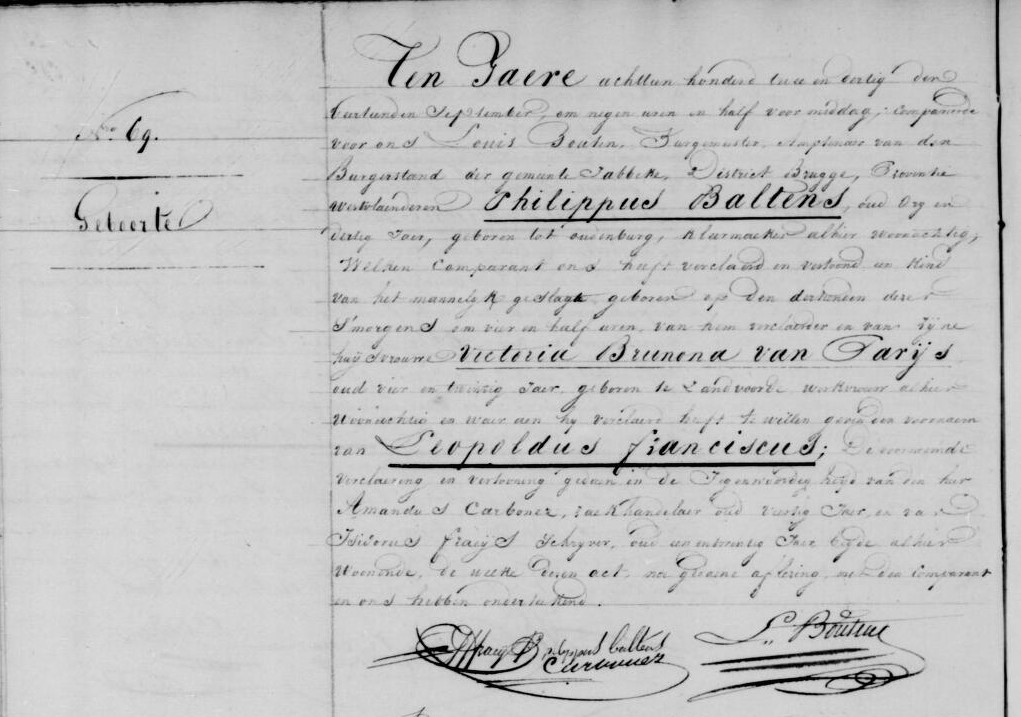 No 69.
Geboorte
Ten Jaere achttien hondert twee en dertig den
veertienden September, om negen uren en half voor middag, compareerde
voor ons Louis Bouten, Burgemeester, Amptenaer van den
Burgerstand der gemeente Jabbeke, District Brugge, Provintie
Westvlaenderen Philippus Baltens, oud dry en
dertig Jaer, geboren tot oudenburg, kleermaeker alhier woonachtig,
Welken Comparant ons heeft verclaerd en vertoond een kind
van het mannelyk geslagt geboren op den derthienden dezer
Smorgens om vier en half uren, van hem verclaerder en van zyne
huysvrouwe Victoria Brunona van Parijs
oud vier en twintig Jaer, geboren te Zandvoorde, werkvrouw alhier
woonachtig en waer aen hy verclaert heeft te willen geven den voornaem
van Leopoldus franciscus; De voornoemde
verclaering en vertooning gedaen in de Tegenwoordigheyd van den heer
Amandus Carbonez, zaekhandelaer oud veertig Jaer, en van
Isidorus fraeijs Schryver, oud een en twintig Jaer beyde alhier
woonende, de welke dezen act, na gedaene aflezing, met den Comparant
en ons hebben onderteekend.
fluppus baltens
Carbonez
L. Bouten